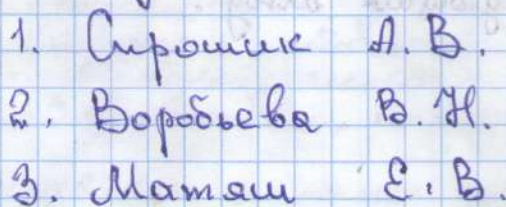 1. Сирошик А. В.
2. Воробьева В. Н.
3. Матяш Е. В.